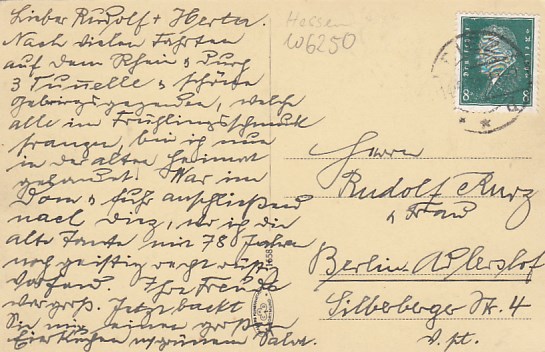 Lieber Rudolf + Herta.
Nach vielen Fahrten
auf dem Rhein & durch
3 Tunnelle & schöne
Gebirgsgegenden, welche
alle im Frühlingsschmuck
prangen, bin ich nun
in der alten Heimat
gelandet. War im
Dom & fuhr anschließend
nach Diez, wo ich die
alte Tante mit 78 Jahren
noch geistig rege &
vorfand. Ihre Freude
war groß. Jetzt backt
Sie mir einen großen
Eierkuchen m grünem Salat.
Hessen
W6250
Deutsches Reich
8 8
1658
Herrn
Rudolf Kurz
& Frau
Berlin Adlershof
Silberberger Str. 4
v. pt.